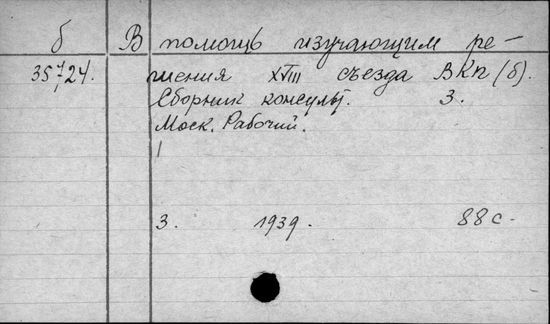 б В помощь изучающим ре-
35724. шения XVIII съезда ВКП(б).
Сборник консульт. 3.
Моск. Рабочий.
3. 1939. 88 с.